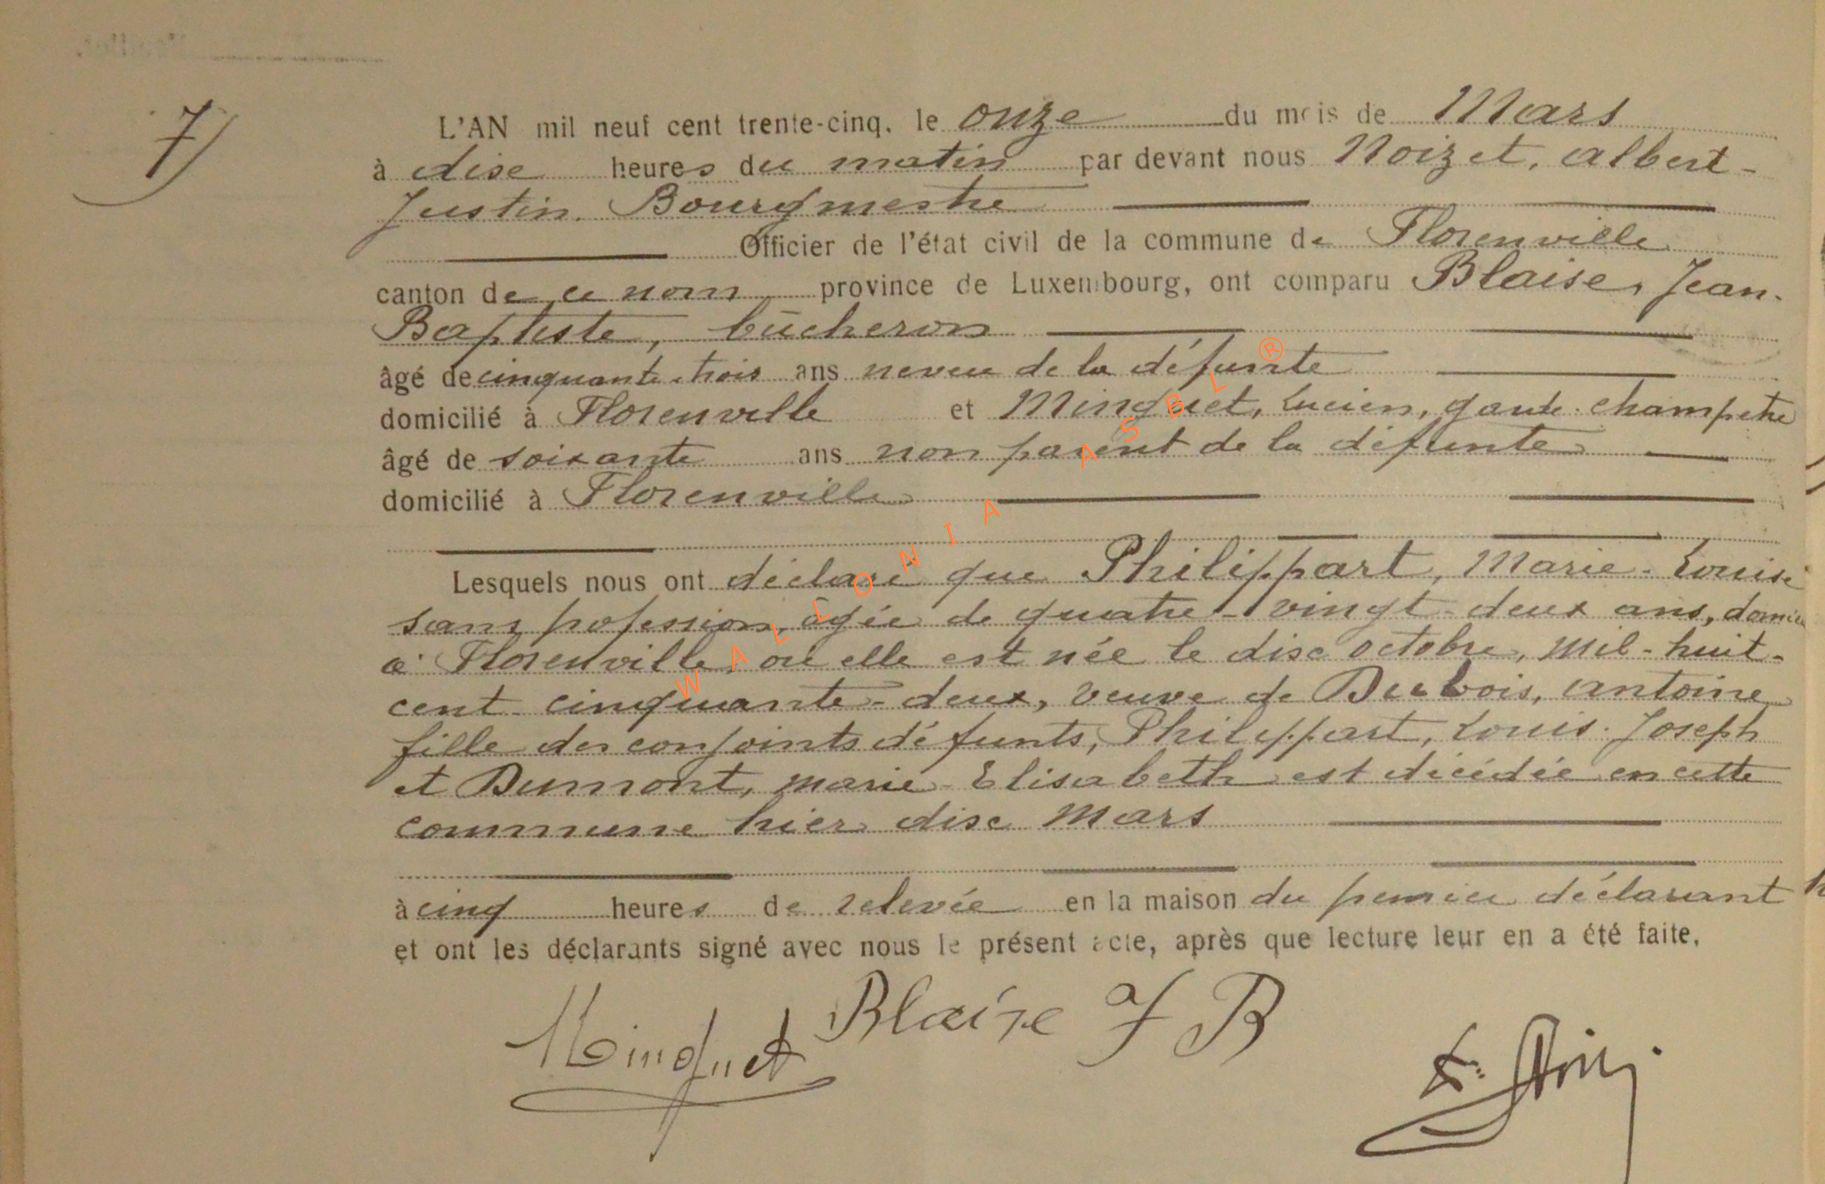 7)
L'AN mil neuf cent trente-cinq, le onze du mois de Mars
à dise heures du matin par devant nous Noizet, Albert-
Justin. Bourgmestre
Officier de l'état civil de la commune de Florenville
canton de ce nom province de Luxembourg, ont comparu Blaise, Jean-
Baptiste, bûcheron
âgé de cinquante-trois ans neveu de la défunte
domicilié à Florenville et Minguet, Lucien, garde-champetre
âgé de soixante ans non parent de la défunte
domicilié à Florenville
Lesquels nous ont déclaré que Philippart, Marie-Louise
sans profession, âgée de quatre-vingt-deux ans, domici
à Florenville, où elle est née le dise octobre, mil-huit-
cent-cinquante-deux, veuve de Dubois, Antoine
fille des conjoints défunts, Philippart, Louis-Joseph
et Dumont, Marie-Elisabeth est décédée en cette
commune hier dise Mars
à cinq heures de relevée en la maison du premier déclarant
et ont les déclarants signé avec nous le présent acte, après que lecture leur en a été faite.
Minguet Blaise J B
WALLONIA ASBL ®